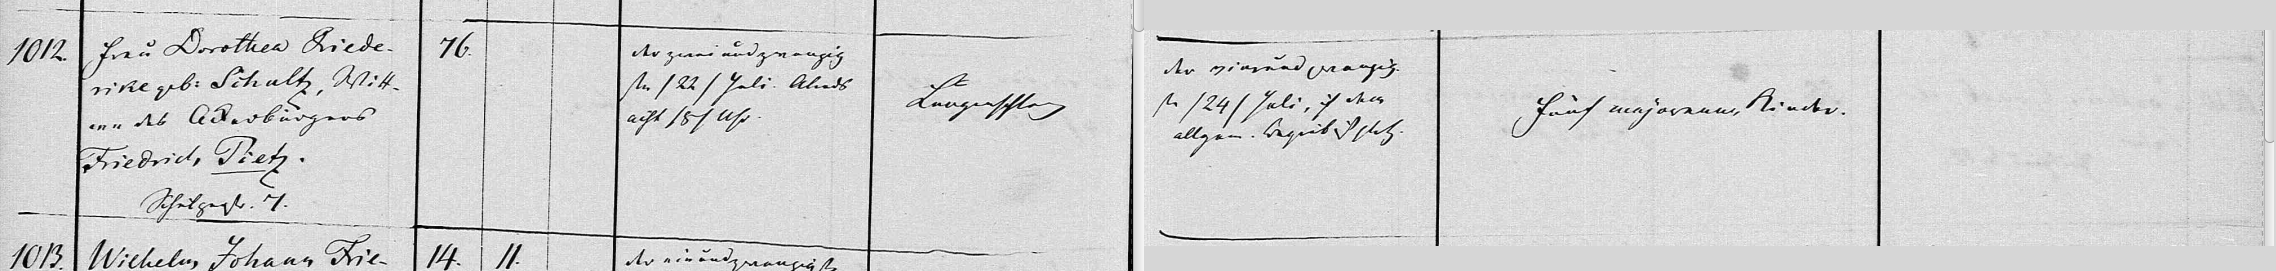 1012.
Frau Dorothea Friede-
rike geb: Schultz, Witt-
we des Ackerbürgers
Friedrich Pietz.
Schulzenstr. 7.
76.
der zweiundzwanzig
ste /22/ Juli. Abends
acht /8/ Uhr.
Lungenschlag
der vierundzwanzig-
ste /24/ Juli, auf dem
allgem. Begräbnißplatz.
Fünf majorenne Kinder.
1013.
Wilhelm Johann Frie-
14.
11.
der einundzwanzigste